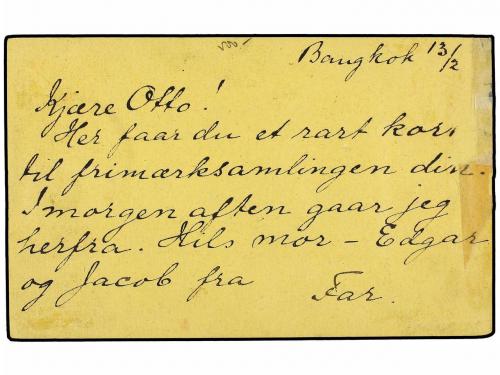 Bangkok 13/2
Kjære Otto!
Her faar du et rart kort
til frimærksamlingen din.
I morgen aften gaar jeg
herfra. Hils mor – Edgar
og Jacob fra
Far.